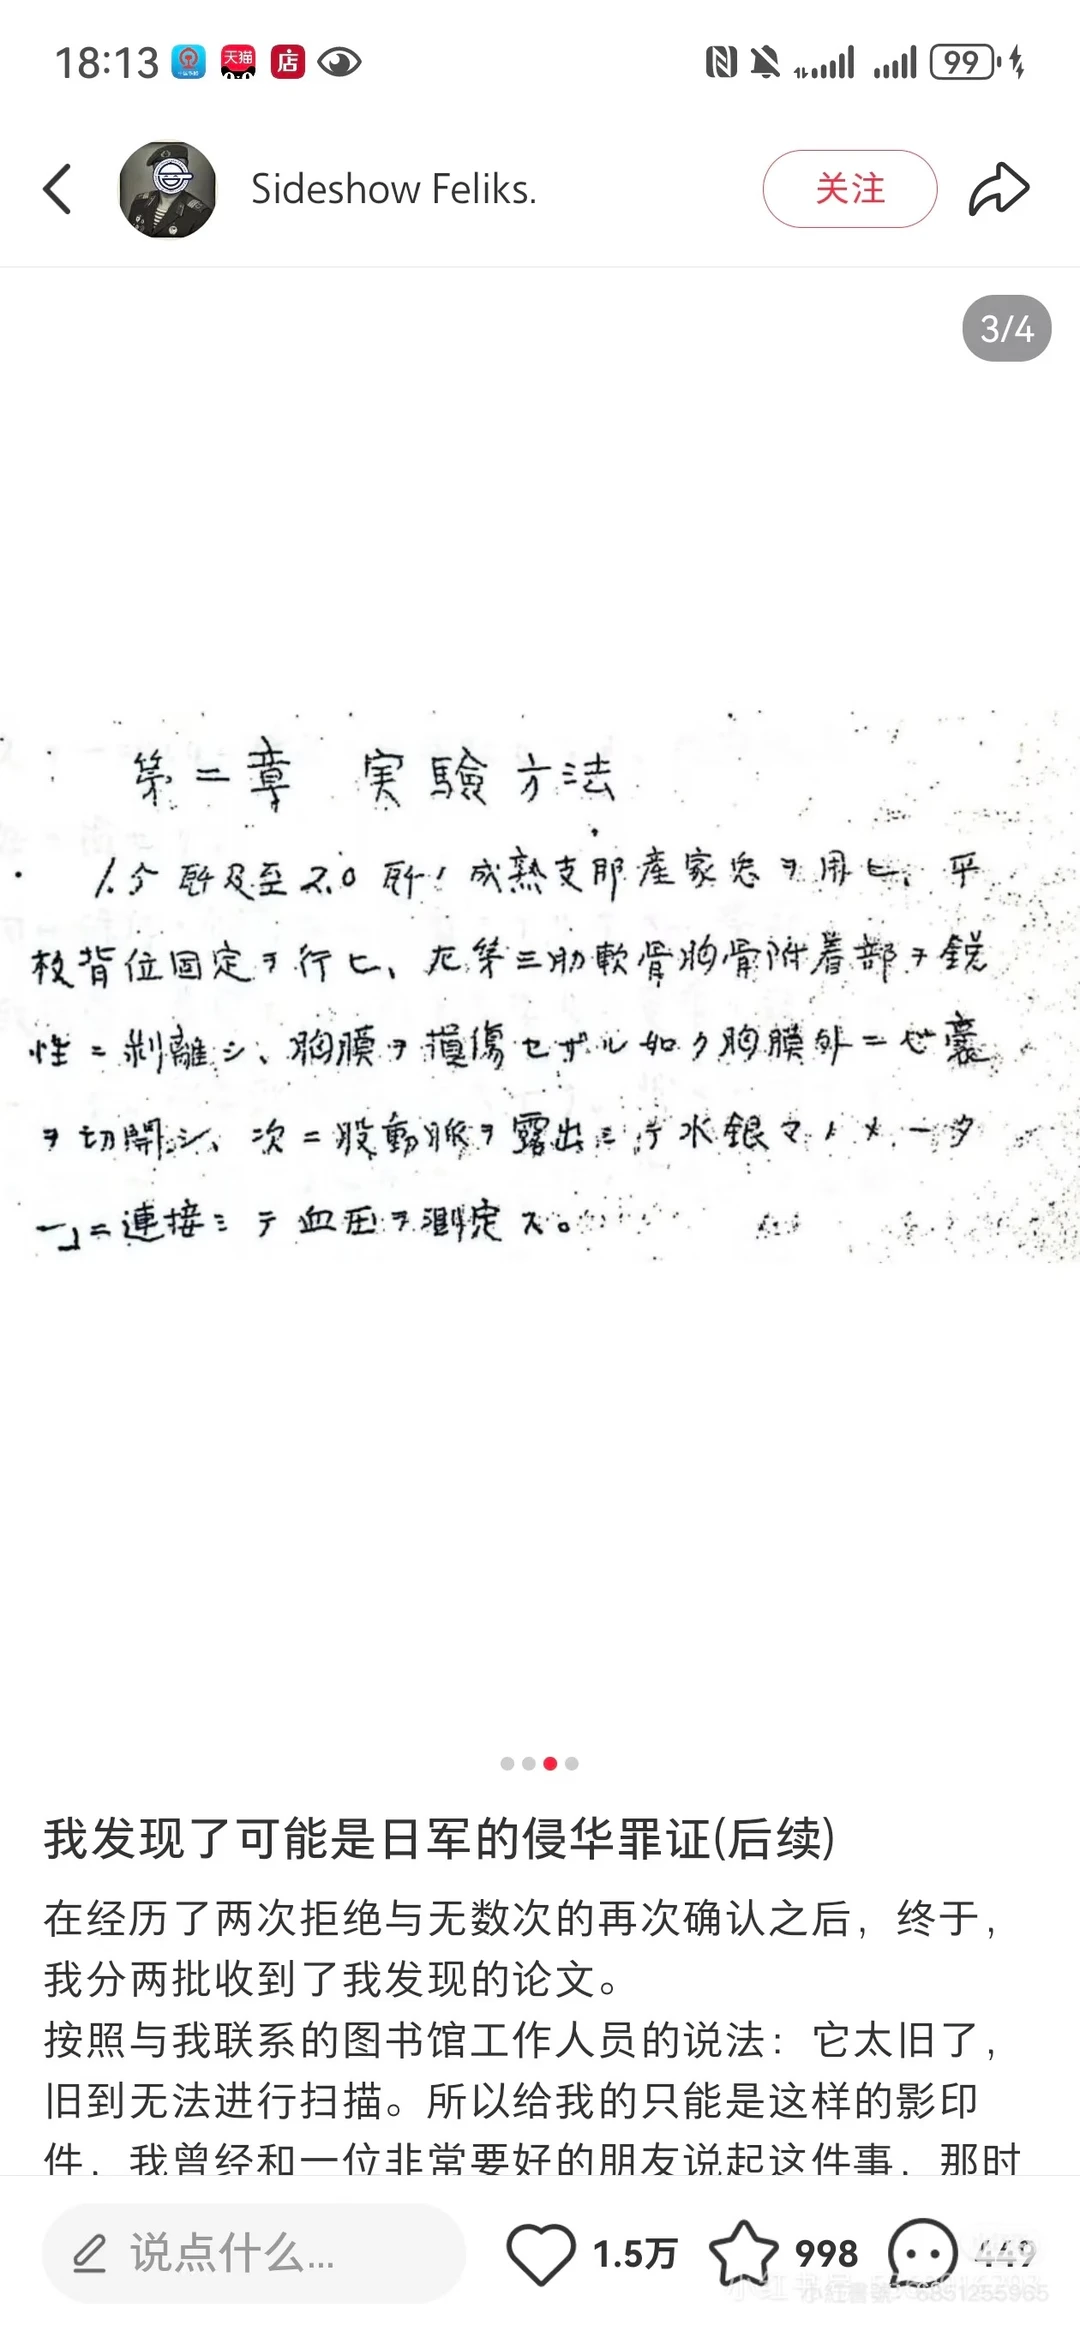 18:13 天猫 店 99
Sideshow Feliks. 关注
3/4
第二章 実験方法
1.5瓩及至2.0瓩ノ成熟支那産家兎ヲ用ヒ、平
板背位固定ヲ行ヒ、左第三肋軟骨胸骨附着部ヲ鋭
性ニ剥離シ、胸膜ヲ損傷セザル如ク胸膜外ニ心嚢
ヲ切開シ、次ニ股動脈ヲ露出シテ水銀マノメーター
ニ連接シテ血圧ヲ測定ス。
我发现了可能是日军的侵华罪证(后续)
在经历了两次拒绝与无数次的再次确认之后，终于，
我分两批收到了我发现的论文。
按照与我联系的图书馆工作人员的说法：它太旧了，
旧到无法进行扫描。所以给我的只能是这样的影印
件，我曾经和一位非常要好的朋友说起这件事，那时
说点什么... 1.5万 998 449
小红书号：6851255965